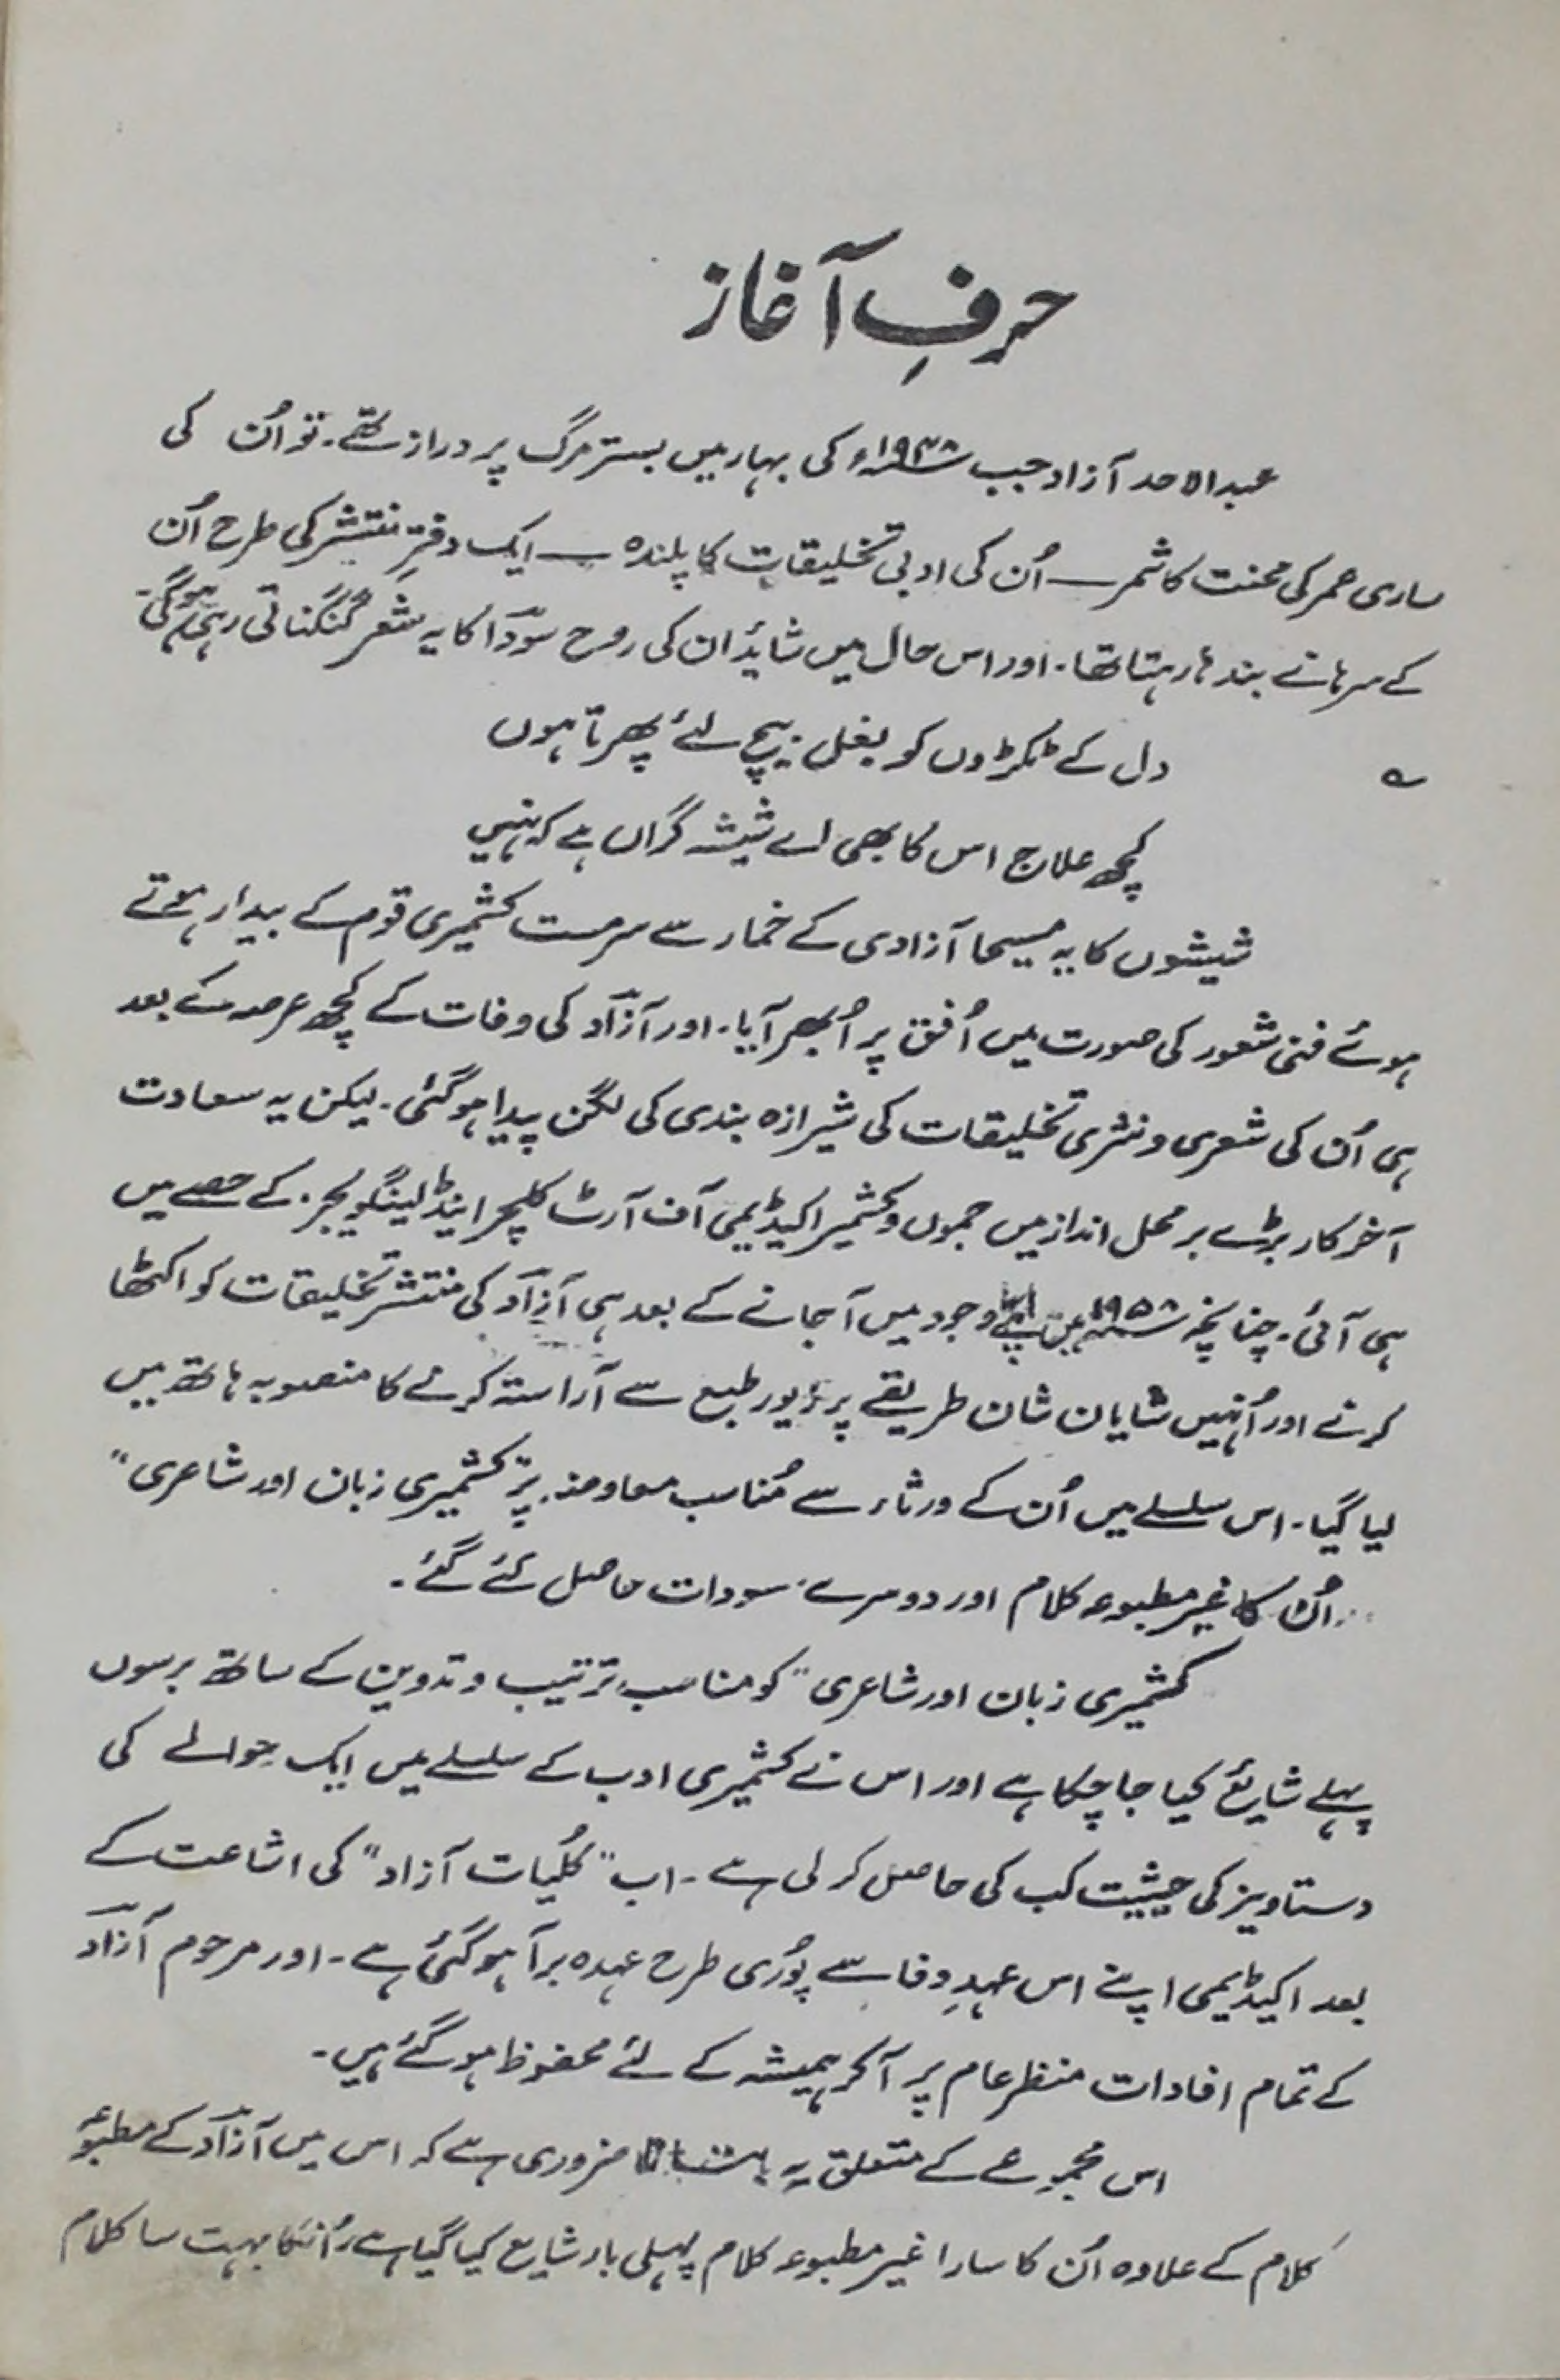 حرفِ آغاز
عبدالاحد آزاد جب ۱۹۴۸ء کی بہار میں بسترِ مرگ پر دراز تھے۔ تو اُن کی
ساری عمر کی محنت کا ثمر ـــ اُن کی ادبی تخلیقات کا پلندہ ـــ ایک دفترِ منتشر کی طرح اُن
کے سرہانے بندھا رہتا تھا۔ اور اس حال میں شائد ان کی روح سوداؔ کا یہ شعر گنگناتی رہی ہوگی۔
؎ دل کے ٹکڑوں کو بغل بیچ لئے پھرتا ہوں
کچھ علاج اس کا بھی اے شیشہ گراں ہے کہ نہیں
شیشوں کا یہ مسیحا آزادی کے خمار سے سرمست کشمیری قوم کے بیدار ہوتے
ہوئے فنی شعور کی صورت میں اُفق پر اُبھر آیا۔ اور آزادؔ کی وفات کے کچھ عرصہ کے بعد
ہی اُن کی شعری و نثری تخلیقات کی شیرازہ بندی کی لگن پیدا ہوگئی۔ لیکن یہ سعادت
آخر کار بڑے برمحل انداز میں جموں و کشمیر اکیڈیمی آف آرٹ کلچر اینڈ لینگویجز۔ کے حصے میں
ہی آئی۔ چنانچہ ۱۹۵۸ء میں اپنے وجود میں آ جانے کے بعد ہی آزادؔ کی منتشر تخلیقات کو اکٹھا
کرنے اور اُنہیں شایان شان طریقے پر زیور طبع سے آراستہ کرنے کا منصوبہ ہاتھ میں
لیا گیا۔ اس سلسلے میں اُن کے ورثاء سے مُناسب معاوضہ پر "کشمیری زبان اور شاعری"
اُن کا غیر مطبوعہ کلام اور دوسرے مسودات حاصل کئے گئے۔
کشمیری زبان اور شاعری" کو مناسب ترتیب و تدوین کے ساتھ برسوں
پہلے شایع کیا جا چکا ہے اور اس نے کشمیری ادب کے سلسلے میں ایک حوالے کی
دستاویز کی حیثیت کب کی حاصل کر لی ہے۔ اب "کُلیات آزاد" کی اشاعت کے
بعد اکیڈیمی اپنے اس عہدِ وفا سے پُوری طرح عہدہ برآ ہوگئی ہے۔ اور مرحوم آزادؔ
کے تمام افادات منظرِ عام پر آکر ہمیشہ کے لئے محفوظ ہوگئے ہیں۔
اس مجموعے کے متعلق یہ بتانا ضروری ہے کہ اس میں آزادؔ کے مطبوعہ
کلام کے علاوہ اُن کا سارا غیر مطبوعہ کلام پہلی بار شایع کیا گیا ہے۔ اُنکا بہت سا کلام